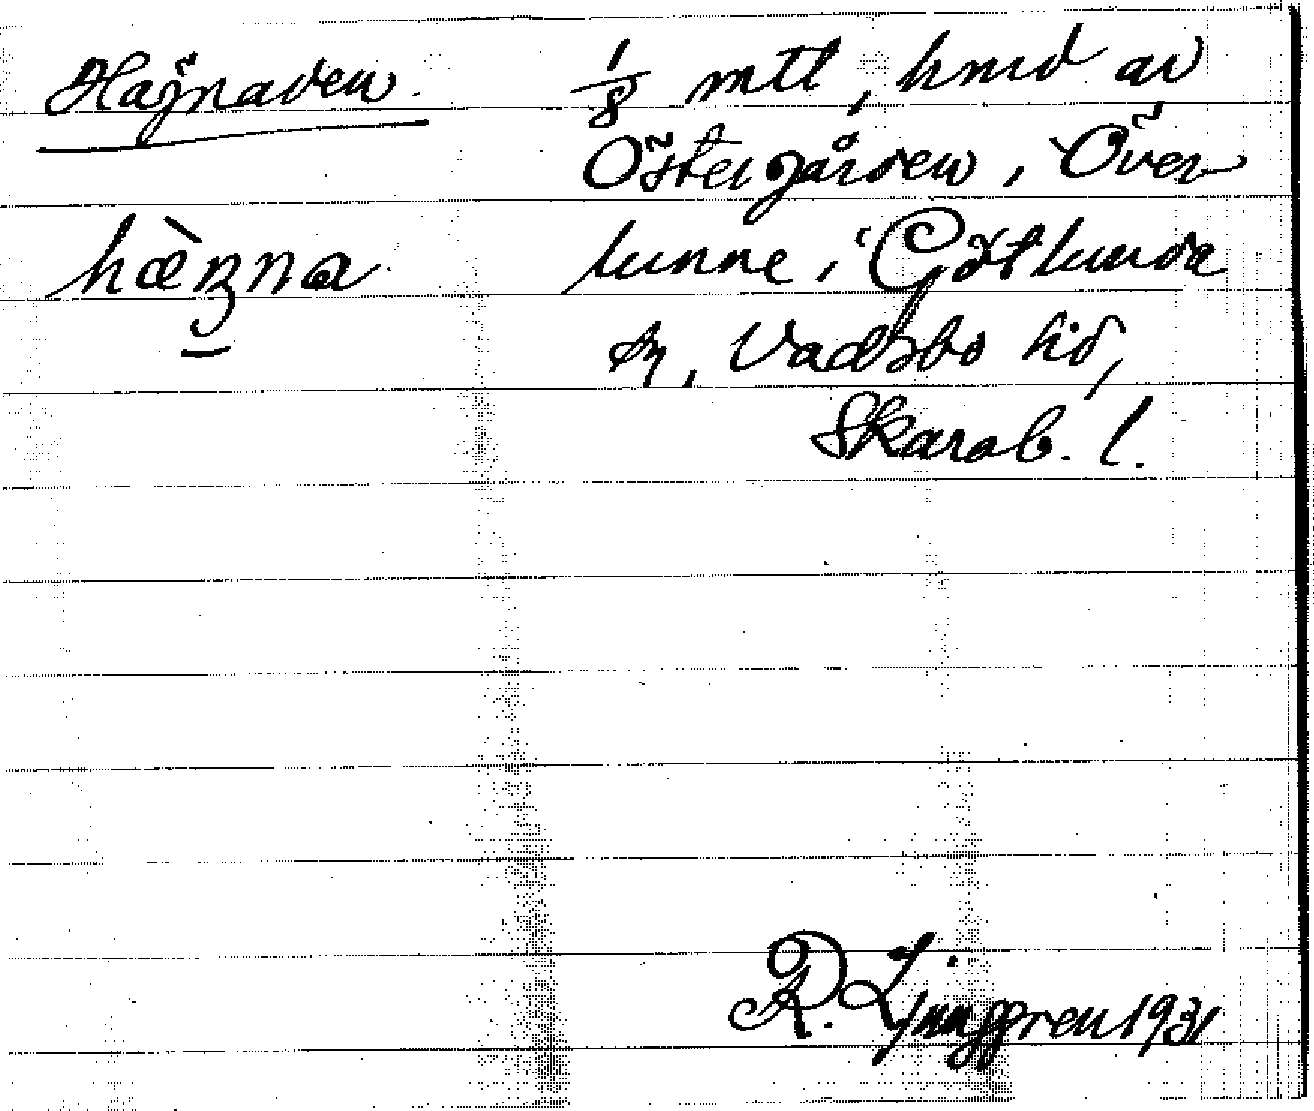 Hägnaden
1/8 mtl, hmd av
Östergården i Över
hæ̀ŋna
lunne i Götlunda
sn, Vadsbo hd,
Skarab. l.
R. Ljunggren 1931